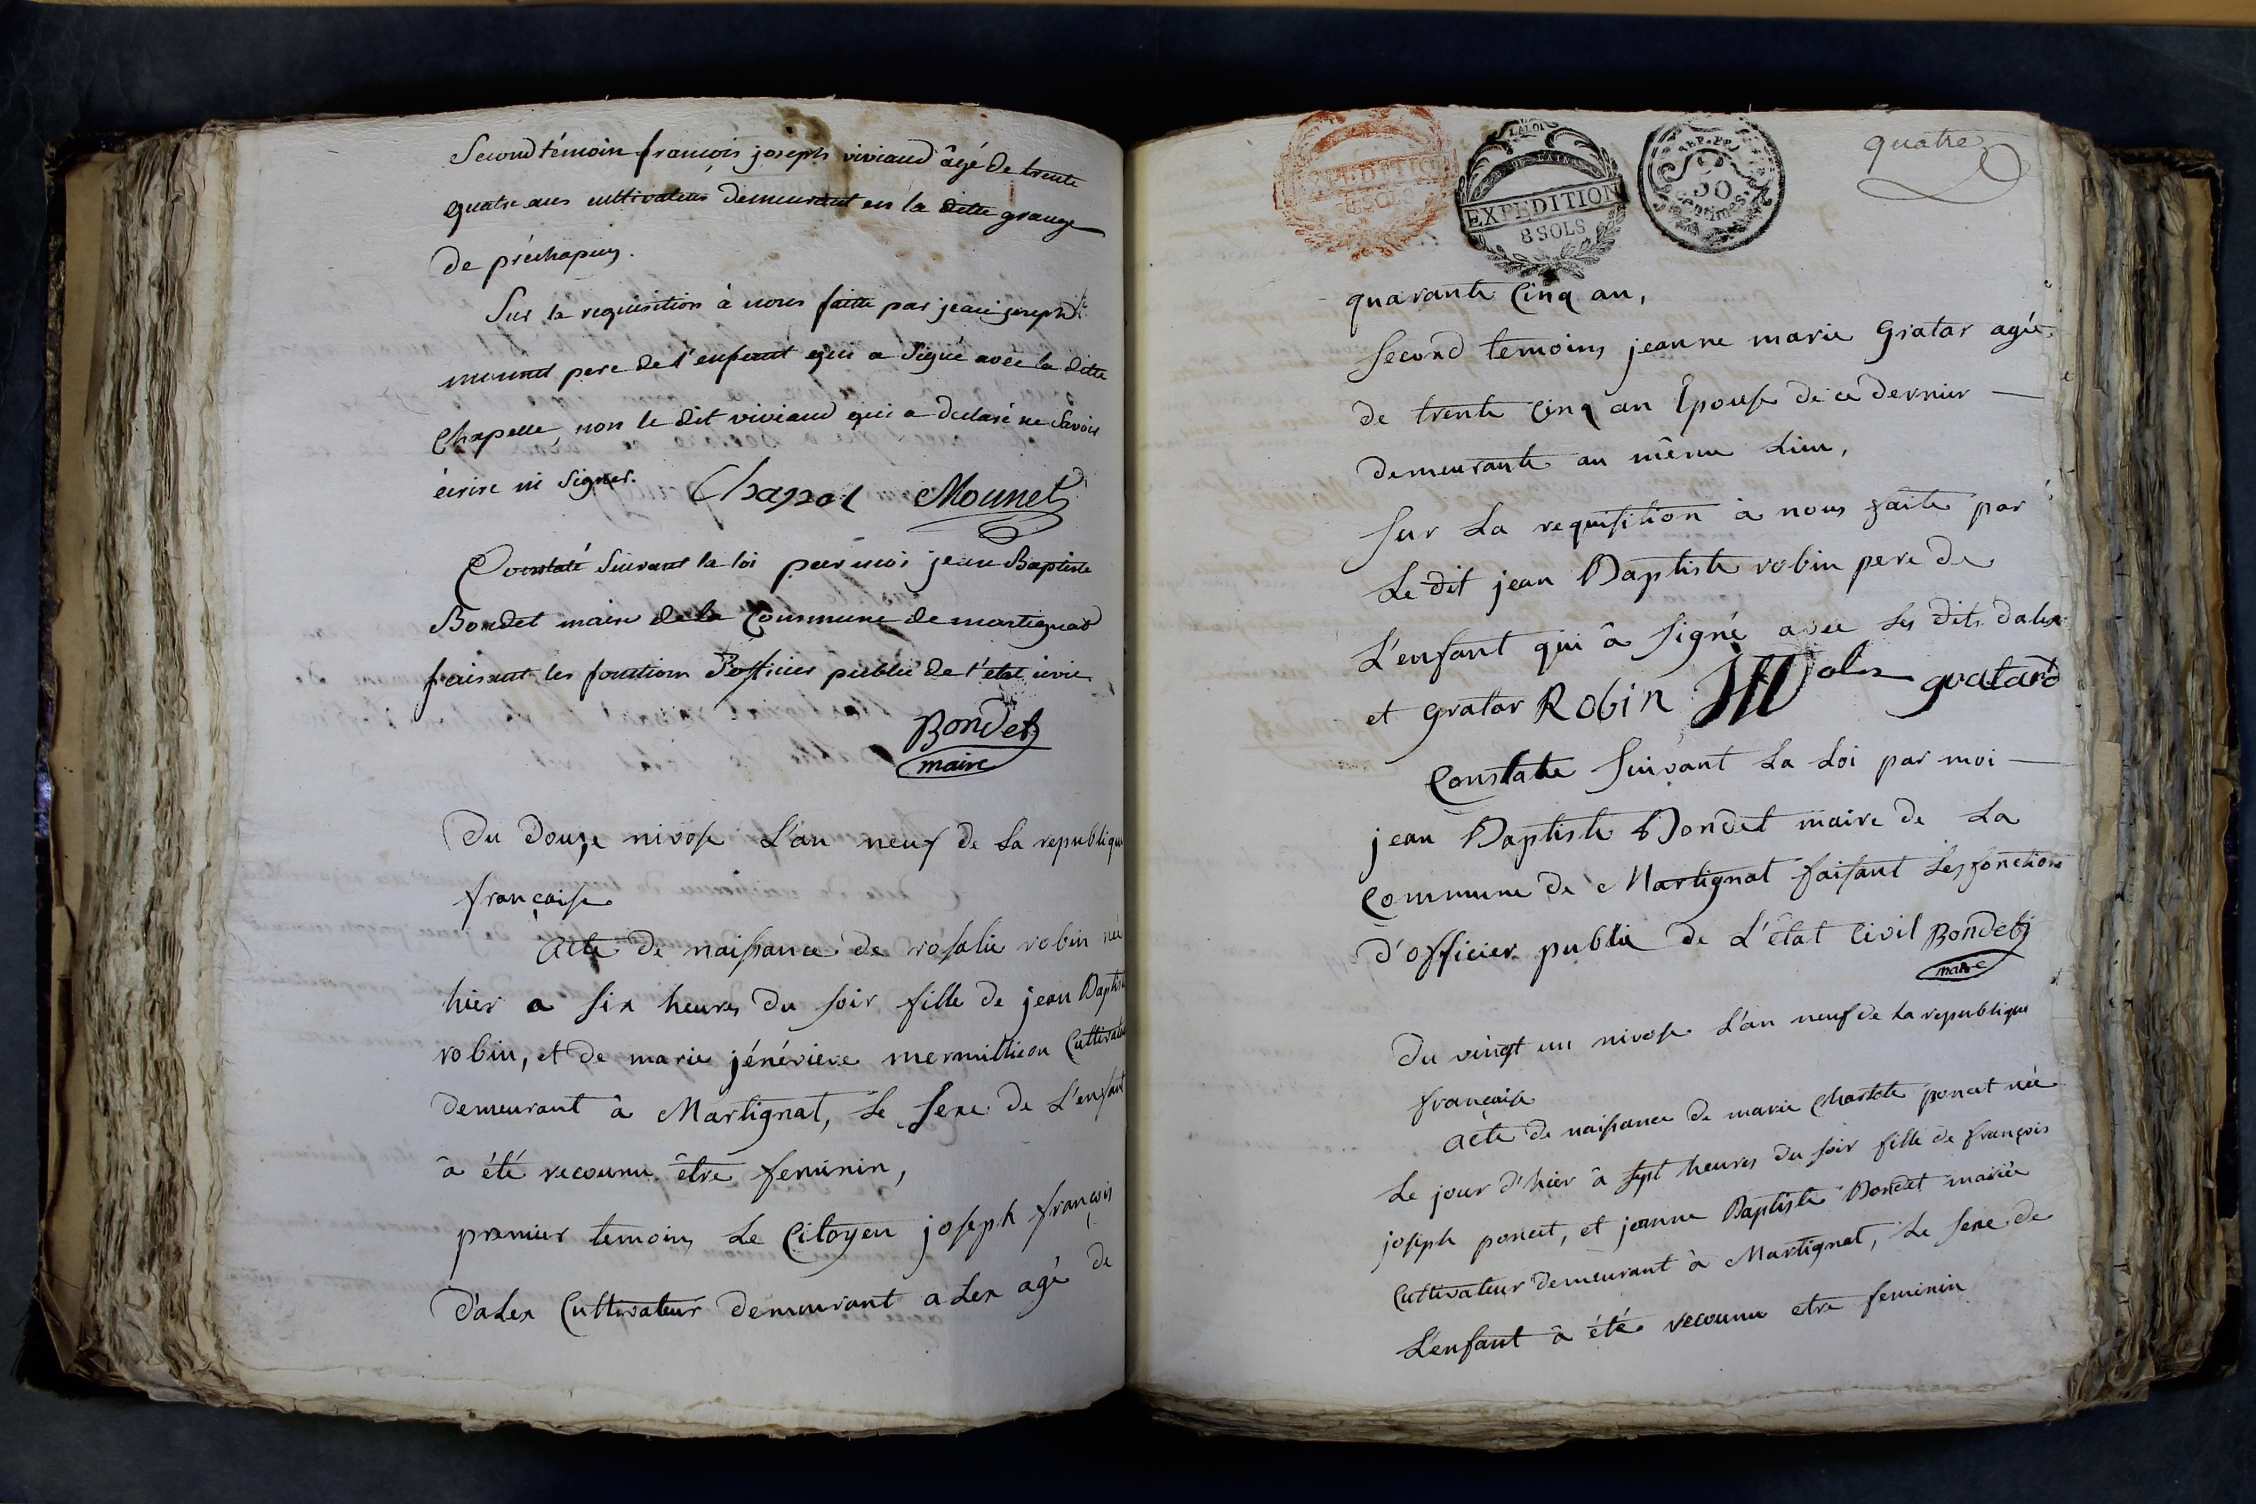 Second témoin françois joseph viviand âgé de trente
quatre ans cultivateur demeurant en la ditte grange
de préchapuy.
Sur la requisition à nous faitte par jean joseph
mounet pere de l'enfant qui a signé avec la ditte
Chapelle, non le dit viviand qui a declaré ne savoir
écrire ni signer. Chapel Mounet
Constaté suivant la loi par moi jean Baptiste
Bondet maire de la Commune de martignat
faisant les fonctions d'officier public de l'état civil
Bondet
maire
Du douze nivose L'an neuf de La republique
françaises
acte de naissance de rosalie robin née
hier a six heures du soir fille de jean Baptiste
robin, et de marie jénévieve mermillion Cultivateur
demeurant à Martignat, Le sexe de L'enfant
à été reconnu être feminin,
premier temoins Le Citoyen joseph françois
d'aLex Cultivateur demeurant a Lex agé de
quatre
LA LOI
DE L'AIN
EXPEDITION
8 SOLS
EXPEDITION
8 SOLS
REP. FR.
50
Centimes
quarante Cinq an,
second temoins jeanne marie Gratar agée
de trente Cinq an Epouse de ce dernier
demeurante au même Lieu,
sur La requisition à nous faite par
Le dit jean Baptiste robin pere de
L'enfant qui à signé avec Les dits dalex
et gratar Robin gratard
Constate suivant La Loi par moi
jean Baptiste Bondet maire de La
Commune de Martignat faisant Les fonctions
d'officier public de L'état Civil Bondet
maire
Du vingt un nivose L'an neuf de La republique
française
acte de naissance de marie Charlote poncet née
Le jour d'hier à sept heures du soir fille de françois
joseph poncet, et jeanne Baptiste Bondet mariée
Cultivateur demeurant à Martignat, Le sexe de
L'enfant à été reconnu etre feminin